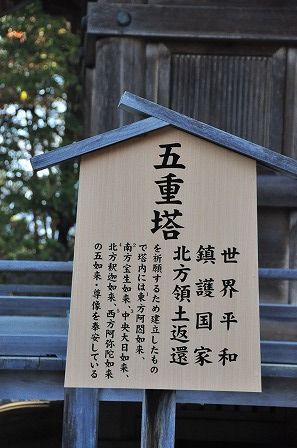 五重塔
世界平和
鎮護国家
北方領土返還
を祈願するため建立したもの
で塔内には東方阿閦如来、
南方宝生如来、中央大日如来、
北方釈迦如来、西方阿弥陀如来
の五如来・尊像を奉安している